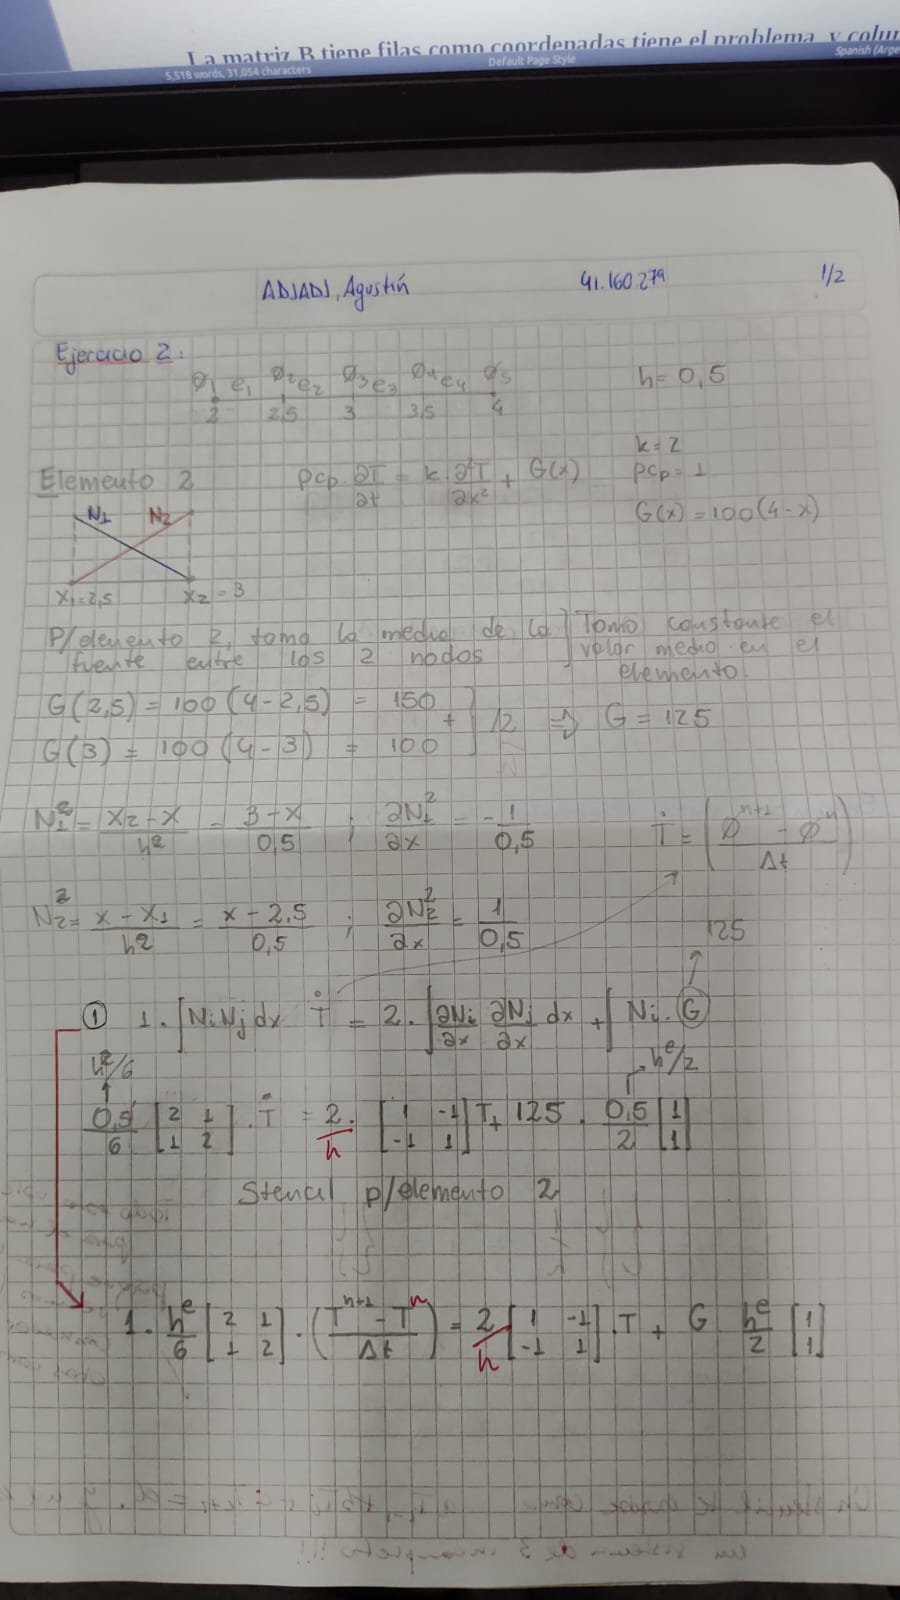 La matriz B tiene filas como coordenadas tiene el problema, y colu
5,518 words, 31,054 characters
Default Page Style
Spanish (Arge
ADJADJ, Agustín 41.160.279 1/2
Ejercicio 2:
Ø1 e1 Ø2 e2 Ø3 e3 Ø4 e4 Ø5 h = 0,5
2 2,5 3 3,5 4
k = 2
Elemento 2 ρCp ∂T/∂t = k ∂²T/∂x² + G(x) ρCp = 1
N1 N2 G(x) = 100(4-x)
X1=2,5 X2=3
P/elemento 2, tomo la media de la fuente entre los 2 nodos ] Tomo constante el valor medio en el elemento.
G(2,5) = 100(4-2,5) = 150
+ ] /2 ⇒ G = 125
G(3) = 100(4-3) = 100
N1² = (x2-x)/h² = (3-x)/0,5 ; ∂N1²/∂x = -1/0,5 Ṫ = (Ø^(n+1) - Ø^n)/Δt
N2² = (x-x1)/h² = (x-2,5)/0,5 ; ∂N2²/∂x = 1/0,5
125
① 1. ∫NiNj dx Ṫ = 2. ∫∂Ni/∂x ∂Nj/∂x dx + ∫Ni.G
h²/6 h^e/2
0,5/6 [2 1; 1 2] . Ṫ = 2./h [1 -1; -1 1] T + 125 . 0,5/2 [1; 1]
Stencil p/elemento 2
1. h^e/6 [2 1; 1 2] . (T^(n+1) - T^n)/Δt = 2/h [1 -1; -1 1] .T + G h^e/2 [1; 1]